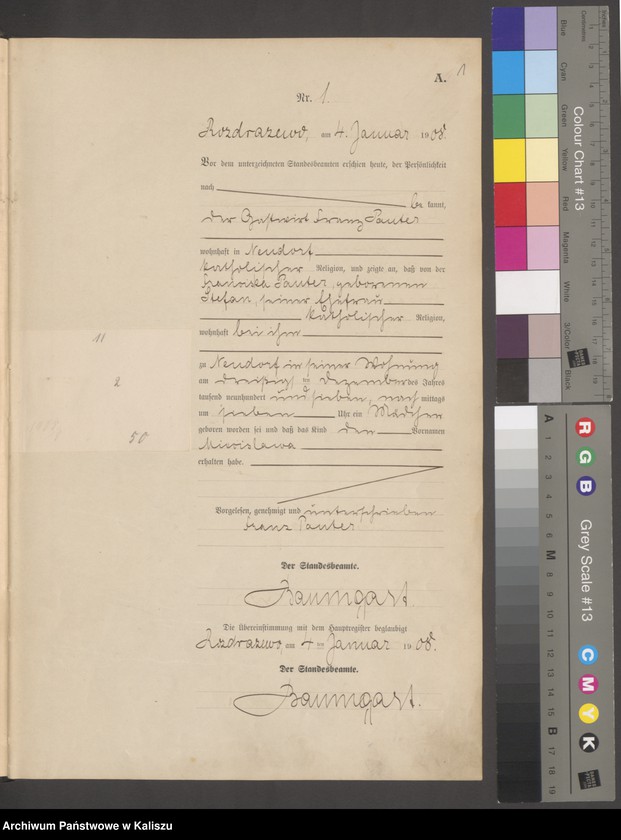 A. 1
Nr. 1.
Rozdrazewo, am 4. Januar 1908.
Vor dem unterzeichneten Standesbeamten erschien heute, der Persönlichkeit
nach
be kannt,
der Gastwirt Franz Pauter
wohnhaft in Neudorf
katholischer Religion, und zeigte an, daß von der
Franziska Pauter, geborenen
Stefan, seiner Ehefrau
katholischer Religion,
wohnhaft bei ihm
zu Neudorf in seiner Wohnung
am dreißigsten Dezember des Jahres
tausend neunhundert und sieben, nach mittags
um sieben Uhr ein Mädchen
geboren worden sei und daß das Kind den Vornamen
Miecislawa
erhalten habe.
Vorgelesen, genehmigt und unterschrieben
Franz Pauter
Der Standesbeamte.
Baumgart.
Die Übereinstimmung mit dem Hauptregister beglaubigt
Rozdrazewo, am 4ten Januar 1908.
Der Standesbeamte.
Baumgart.
11
2
50
Colour Chart #13
Blue
Cyan
Green
Yellow
Red
Magenta
White
3/Color
Black
Centimetres
Inches
Grey Scale #13
R
G
B
C
M
Y
K
A 1 2 3 4 5 6 M 8 9 10 11 12 13 14 15 B 17 18 19
Archiwum Państwowe w Kaliszu